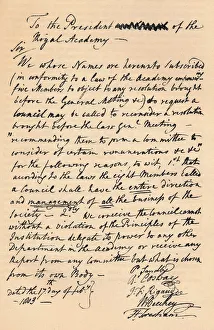 To the President of the
Royal Academy —
Sir
We whose Names are hereunto Subscribed
(in conformity to a Law of the Academy empowering
five Members to object to any resolution brought
before the General Meeting &c) do request a
Council may be called to reconsider a resolution
brought before the last Genl. Meeting
"recommending them to form a Committee to
consider of certain remunerations &c &c"
for the following reasons to wit, 1st that
according to the Laws the eight Members called
a Council shall have the entire direction
and management of all the business of the
Society — 2dly We conceive the Council cannot
without a violation of the Principles of the
Institution delegate to power to any other
department in the Academy or receive any
Report from any Committee but what is chosen
from its own Body —
dated the day of
1803
J. F. Rigaud
W Beechey